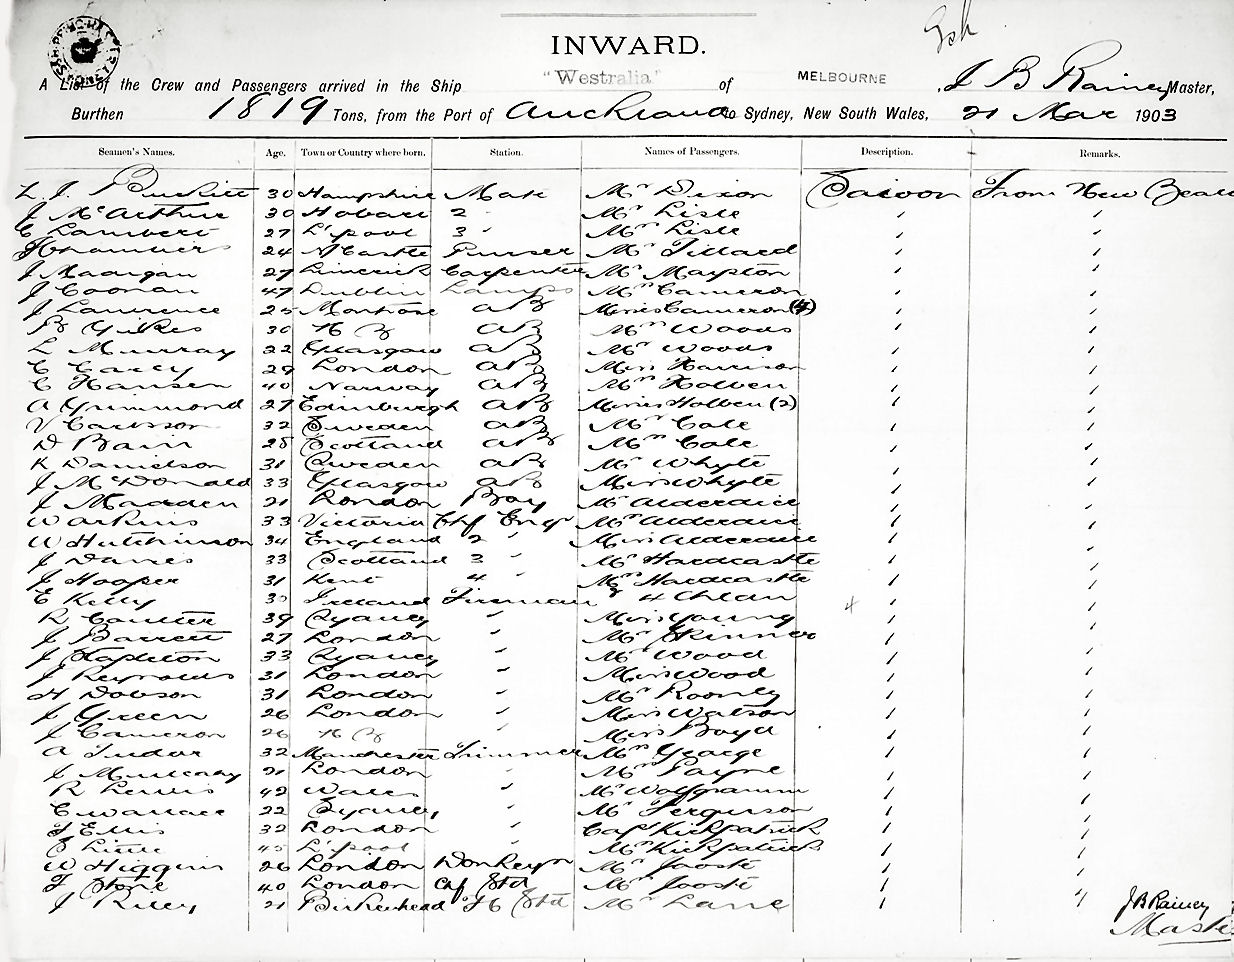 INWARD.
A List of the Crew and Passengers arrived in the Ship "Westralia" of MELBOURNE, J B Rainey Master,
Burthen 1819 Tons, from the Port of Auckland to Sydney, New South Wales, 21 Mar 1903
Seamen's Names. Age. Town or Country where born. Station. Names of Passengers. Description. Remarks.
L. J. 30 Hampshire Mate Mr Dixon Saloon From New Zeal
J McArthur 30 Hobart 2 " Mr Lisle " "
C Lambert 27 L'pool 3 " Mrs Lisle " "
24 NCastle Purser Mr Tillard " "
J 27 Limerick Carpenter Mr Maypton " "
J Coonan 47 Dublin Lamps Mrs Cameron " "
J Lawrence 25 Montrose AB Misses Cameron (4) " "
30 N Z AB Mrs Woods " "
L Murray 22 Glasgow AB Mr Woods " "
C Carey 29 London AB Miss Harrison " "
C Hansen 40 Norway AB Mrs Holben " "
A Grimmond 27 Edinburgh AB Misses Holben (2) " "
V Carlsson 32 Sweden AB Mr Cale " "
D Bain 28 Scotland AB Mrs Cale " "
K Danielson 31 Sweden AB Mr Whyte " "
J McDonald 33 Glasgow AB Miss Whyte " "
J Madden 21 London Boy Mr Alderdice " "
W Arkins 33 Victoria Chf Engr Mrs Alderdice " "
W Hutchinson 34 England 2 " Miss Alderdice " "
J Davies 33 Scotland 3 " Mr Hardcastle " "
J Hooper 31 Kent 4 " Mrs Hardcastle " "
E Kelly Ireland Fireman & 4 Chldn 4 " "
R Coulter 39 Sydney " Miss Young " "
J Barrett 27 London " Mr Skinner " "
J Stapleton 33 Sydney " Mr Wood " "
J Reynolds 31 London " Miss Wood " "
H Dobson 31 London " Mr Rooney " "
J Green 26 London " Miss Watson " "
J Cameron 26 N Z " Miss Boyd " "
A Tudor 32 Manchester Trimmer Mrs George " "
J 21 London " Mrs Payne " "
R Lewis 42 Wales " Mr Wolfgramm " "
C Wallace 22 Sydney " Mr Ferguson " "
F Ellis 32 London " Capt Kirkpatrick " "
Little 45 L'pool " Mrs Kirkpatrick " "
W Higgins 26 London Donkeyn Mr Jooste " "
F Stone 40 London Cf Std Mrs Jooste " "
J Riley 21 Birkenhead Std Mr Lane " "
J B Rainey
Maste